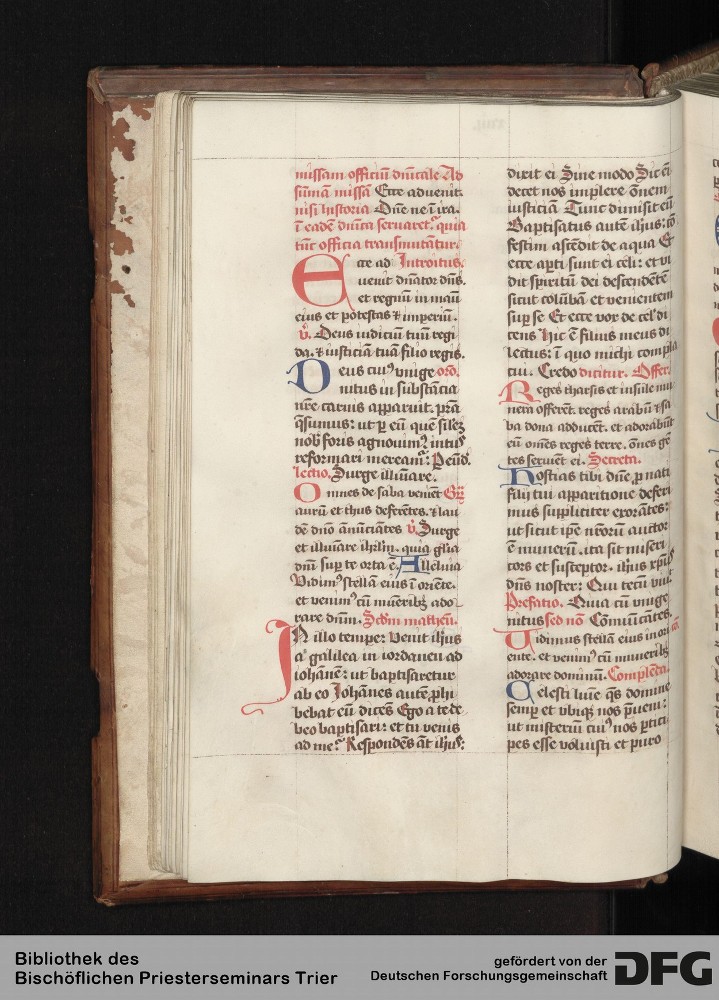 missam officiū dn̄icale Ad
sūmā missā Ecce aduenit.
nisi historia Dn̄e ne ī ira.
ī eadē dn̄ica seruaret᷑. quia
tūc officia transmutātur.
Ecce ad Introitus.
uenit dn̄ator dn̄s.
et regnū in manū
eius et potestas ⁊ imperiū.
v̄. Deus iudiciū tuū regi
da. ⁊ iusticiā tuā filio regis.
Deus cui᷒ vnige oro.
nitus in substācia
nr̄e carnis apparuit. pr̄a
q̄sumus: ut ꝑ eū quē silez
nob̄ foris agnouim᷒ intus
reformari meream᷑: Per eūd.
lectio. Surge illuīare.
Omnes de saba veniēt Gr̄
aurū et thus deferētes. ⁊ lau
dē dn̄o anūciātes v̄. Surge
et illuīare ihrl̄m. quia gl̄ia
dn̄i suꝑ te orta ē. Alleluia
Vidim᷒ stellā eius ī oriēte.
et venim᷒ cū mūeribꝫ ado
rare dn̄m. Scd̄m matheū.
In illo tempe: Venit ih̄us
a galilea in iordaneu ad
iohānē: ut baptisaretur
ab eo Johānes autē ꝓhi
bebat eū dicēs Ego a te de
beo baptisari: et tu venis
ad me᷑ Respondēs āt ih̄us:
dixit ei Sine modo Sic ēi
decet nos implere ōnem
iusticiā Tunc dimisit eū
Baptisatus autē ih̄us: cō
festim ascēdit de aqua Et
ecce aꝑti sunt ei celi: et vi
dit spiritū dei descendētē
sicut colūbā et venientem
suꝑ se Et ecce vox de cel᷒ di
cens Hic ē filius meus di
lectus: ī quo michi compla
cui. Credo dicitur. Offer.
Reges tharsis et insule mu
nera offerēt. reges arabū ⁊ sa
ba dona adducēt. et adorabūt
eū omēs reges terre. ōnes gē
tes seruiēt ei. Secreta.
Hostias tibi dn̄e ꝓ nati
filij tui apparitione deferi
mus suppliciter exorātes:
ut sicut ip̄e nr̄orū auctor
ē munerū. ita sit miseri
cors et susceptor. ih̄us xp̄us
dn̄s noster: Qui tecū viu̅
Prefatio. Quia cū vnige
nitus sed nō Comūicātes.
Vidimus stellā eius in ori cō
ente. et venim᷒ cū muneribꝫ
adorare dominū. Complēda.
Celesti luīe qs̄ domine
semꝑ et vbiqꝫ nos ꝑueni:
ut misteriū cui᷒ nos ꝑtici
pes esse voluisti et puro
Bibliothek des
Bischöflichen Priesterseminars Trier
gefördert von der
Deutschen Forschungsgemeinschaft
DFG